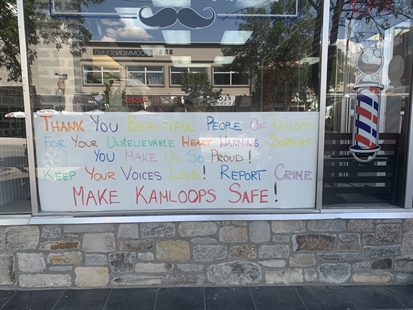 Thank You Beautiful People Of Kamloops
For Your Unbelievable Heart Warning Support
You Make Us So Proud!
Keep Your Voices Loud! Report Crime
Make Kamloops Safe!